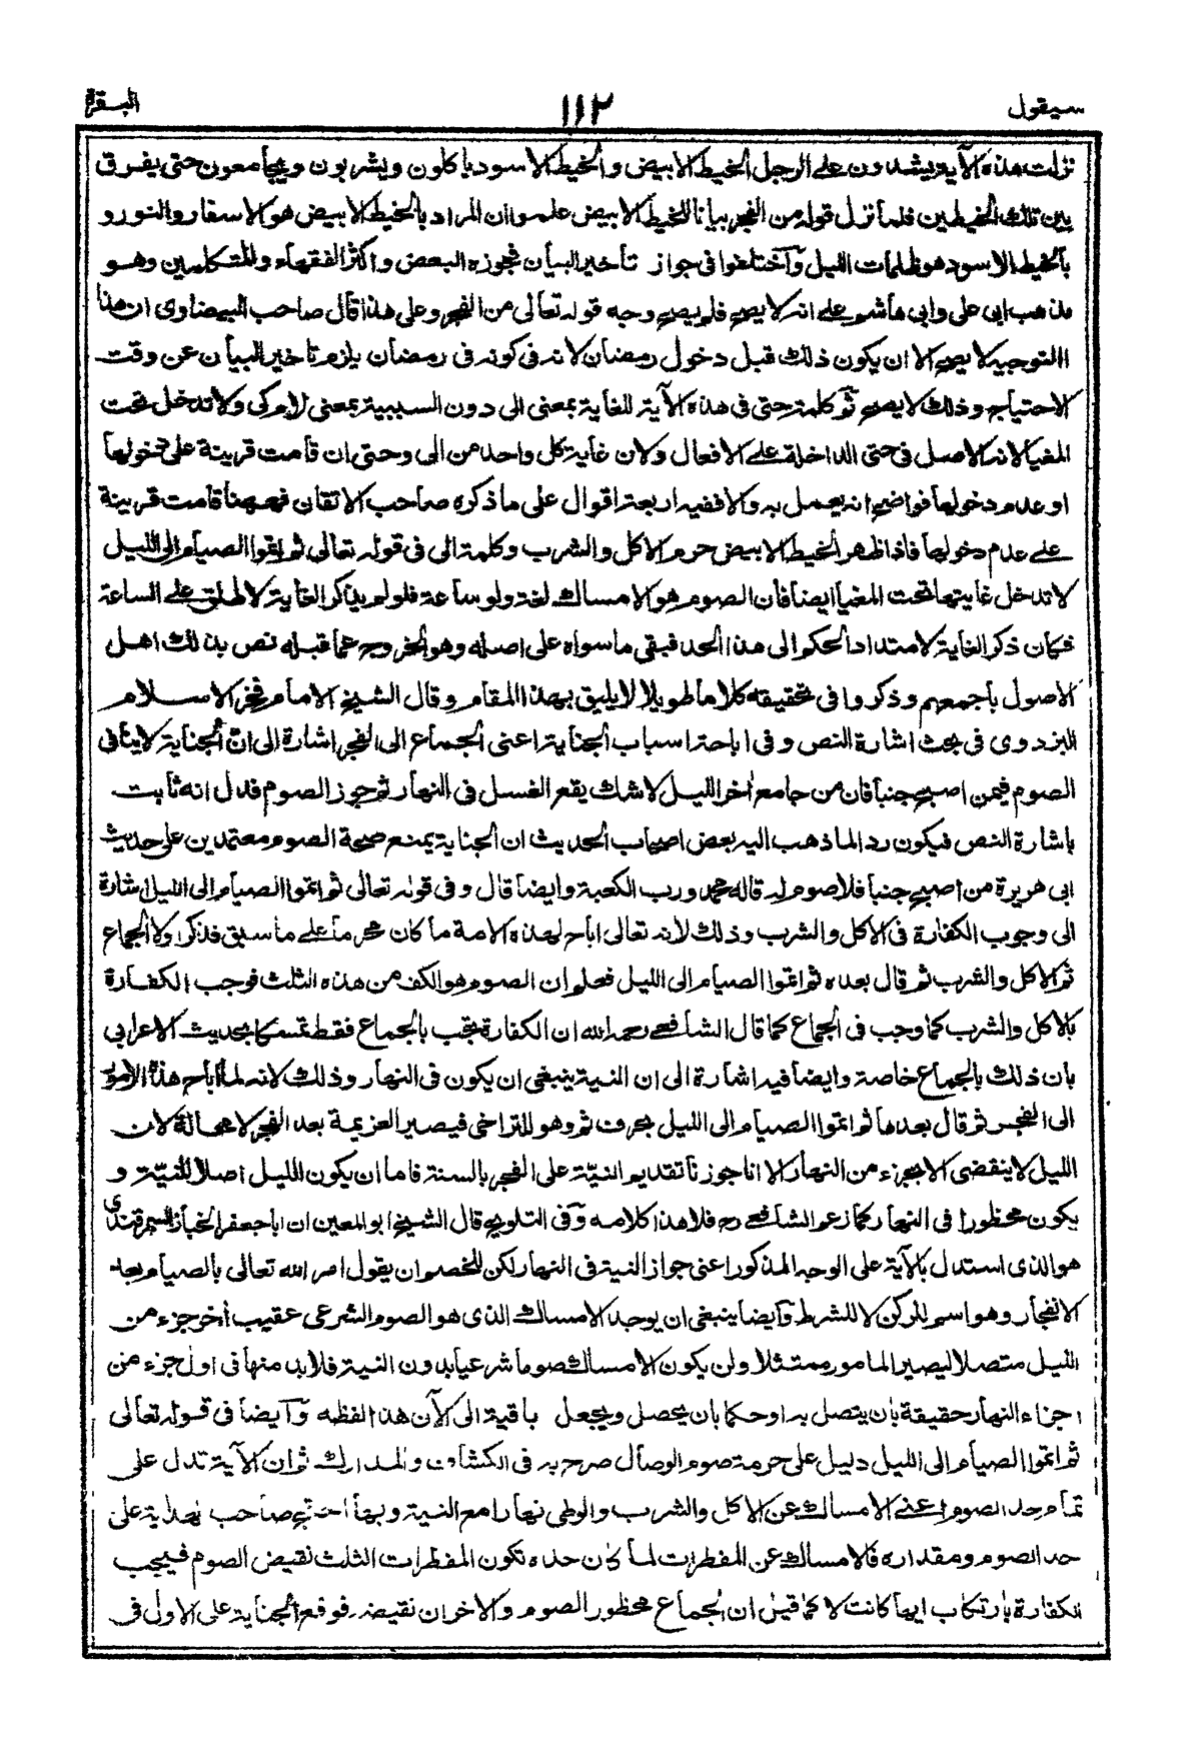 سيقول
١١٢
البقرة
نزلت هذه الآية يشدون على الرجل الخيط الابيض والخيط الاسود ياكلون ويشربون ويجامعون حتى يفرق
بين تلك الخيطين فلما نزل قوله من الفجر بيانا للخيط الابيض علموا ان المراد بالخيط الابيض هو الاسفار والنور و
بالخيط الاسود هو ظلمات الليل وآختلفوا فى جواز تاخير البيان فجوزه البعض واكثر الفقهاء والمتكلمين وهو
مذهب ابى على وابى هاشم على انه لا يصح فلم يصح وجه قوله تعالى من الفجر وعلى هذا قال صاحب البيضاوى ان هذا
التوجيه لا يصح الا ان يكون ذلك قبل دخول رمضان لانه فى كونه فى رمضان يلزم تاخير البيان عن وقت
الاحتياج وذلك لا يصح ثم كلمة حتى فى هذه الآية للغاية بمعنى الى دون السببية بمعنى لام كى ولا تدخل تحت
المغيا لانه الاصل فى حتى الداخلة على الافعال ولان غاية كل واحد من الى وحتى ان قامت قرينة على دخولها
او عدم دخولها فواضح انه يعمل به والا ففيه اربعة اقوال على ما ذكره صاحب الاتقان فههنا قامت قرينة
على عدم دخولها فاذا ظهر الخيط الابيض حرم الاكل والشرب وكلمة الى فى قوله تعالى ثم اتموا الصيام الى الليل
لا تدخل غايتها تحت المغيا ايضا فان الصوم هو الامساك لغة ولو ساعة فلو لم يذكر الغاية لاطلق على الساعة
فكان ذكر الغاية لامتداد الحكم الى هذا الحد فبقى ما سواه على اصله وهو الخروج عما قبله نص بذلك اهل
الاصول باجمعهم وذكروا فى تحقيقه كلاما طويلا لا يليق بهذا المقام وقال الشيخ الامام فخر الاسلام
البزدوى فى بحث اشارة النص وفى اباحة اسباب الجناية اعنى الجماع الى الفجر اشارة الى ان الجناية لا ينافى
الصوم فيمن اصبح جنبا فان من جامع آخر الليل لا شك يقع الغسل فى النهار ثم جوز الصوم فدل انه ثابت
باشارة النص فيكون ردا لما ذهب اليه بعض اصحاب الحديث ان الجناية يمنع صحة الصوم معتمدين على حديث
ابى هريرة من اصبح جنبا فلا صوم له قاله محمد ورب الكعبة وايضا قال وفى قوله تعالى ثم اتموا الصيام الى الليل اشارة
الى وجوب الكفارة فى الاكل والشرب وذلك لانه تعالى اباح لهذه الامة ما كان محرما على ما سبق فذكر اولا الجماع
ثم الاكل والشرب ثم قال بعده ثم اتموا الصيام الى الليل فعلم ان الصوم هو الكف من هذه الثلث فوجب الكفارة
بالاكل والشرب كما وجب فى الجماع كما قال الشافعى رحمه الله ان الكفارة تجب بالجماع فقط تمسكا بحديث الاعرابى
بان ذلك بالجماع خاصة وايضا فيه اشارة الى ان النية ينبغى ان يكون فى النهار وذلك لانه لما اباح هذه الامور
الى الفجر ثم قال بعدها ثم اتموا الصيام الى الليل بحرف ثم وهو للتراخى فيصير العزيمة بعد الفجر لا محالة لان
الليل لا ينقضى الا بجزء من النهار الا انا جوزنا تقديم النيّة على الفجر بالسنة فاما ان يكون الليل اصلا للنيّة و
يكون محظورا فى النهار كما زعم الشافعى رح فلا هذا كلامه وفى التلويح قال الشيخ ابو المعين ان ابا جعفر الخباز السمرقندى
هو الذى استدل بالآية على الوجه المذكور اعنى جواز النية فى النهار لكن للخصم ان يقول امر الله تعالى بالصيام بعد
الانفجار وهو اسم للركن لا للشرط وآيضا ينبغى ان يوجد الامساك الذى هو الصوم الشرعى عقيب آخر جزء من
الليل متصلا ليصير المامور ممتثلا ولن يكون الامساك صوما شرعيا بدون النية فلا بد منها فى اول جزء من
اجزاء النهار حقيقة بان يتصل به او حكما بان يحصل ويجعل باقية الى الآن هذا لفظه وآيضا فى قوله تعالى
ثم اتموا الصيام الى الليل دليل على حرمة صوم الوصال صرح به فى الكشاف والمدارك ثم ان الآية تدل على
تمام حد الصوم اعنى الامساك عن الاكل والشرب والوطى نهارا مع النية وبها احتج صاحب الهداية على
حد الصوم ومقداره فالامساك عن المفطرات لما كان حده تكون المفطرات الثلث نقيض الصوم فيجب
الكفارة بارتكاب ايها كانت لا كما قيل ان الجماع محظور الصوم والاخران نقيضه فوقع الجناية على الاول فى